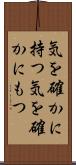 気を確かに
持つ気を確
かにもつ